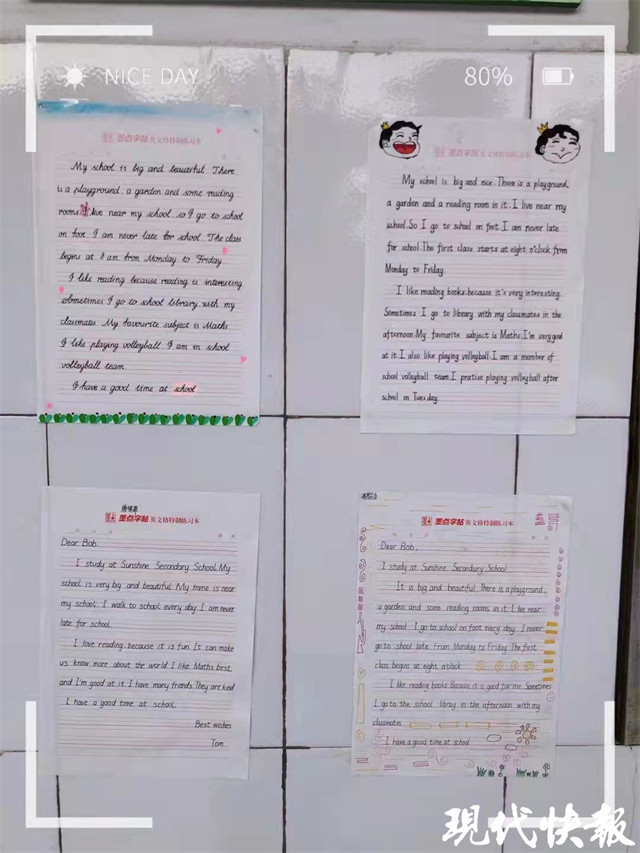 NICE DAY
80%
墨点字帖 英文格特制练习本
My school is big and beautiful. There
is a playground, a garden and some reading
rooms. I live near my school, so I go to school
on foot. I am never late for school. The class
begins at 8 am. from Monday to Friday.
I like reading because reading is interesting
sometimes I go to school library with my
classmates. My favourite subject is Maths
I like playing volleyball. I am in school
volleyball team.
I have a good time at school
墨点字帖 英文格特制练习本
My school is big and nice. There is a playground,
a garden and a reading room in it. I live near my
school. So I go to school on foot. I am never late
for school. The first class starts at eight o'clock from
Monday to Friday.
I like reading books, because it's very interesting.
Sometimes I go to library with my classmates in the
afternoon. My favourite subject is Maths. I'm very good
at it. I also like playing volleyball. I am a member of
school volleyball team. I pratise playing volleyball after
school on Tuesday.
墨点字帖 英文格特制练习本
Dear Bob,
I study at Sunshine Secondary School. My
school is very big and beautiful. My home is near
my school. I walk to school every day. I am never
late for school.
I love reading, because it is fun. It can make
us know more about the world. I like Maths best,
and I'm good at it. I have many friends. They are kind.
I have a good time at school.
Best wishes
Tom
墨点字帖 英文格特制练习本
Dear Bob,
I study at Sunshine Secondary School
It is big and beautiful. There is a playground,
a garden and some reading rooms in it. I live near
my school. I go to school on foot every day. I never
go to shool late. From Monday to Friday. The first
class begins at eight o'clock
I like reading books. Because it is good for me. Sometimes
I go to the school libray in the afternoon with my
classmates
I have a good time at school
现代快报